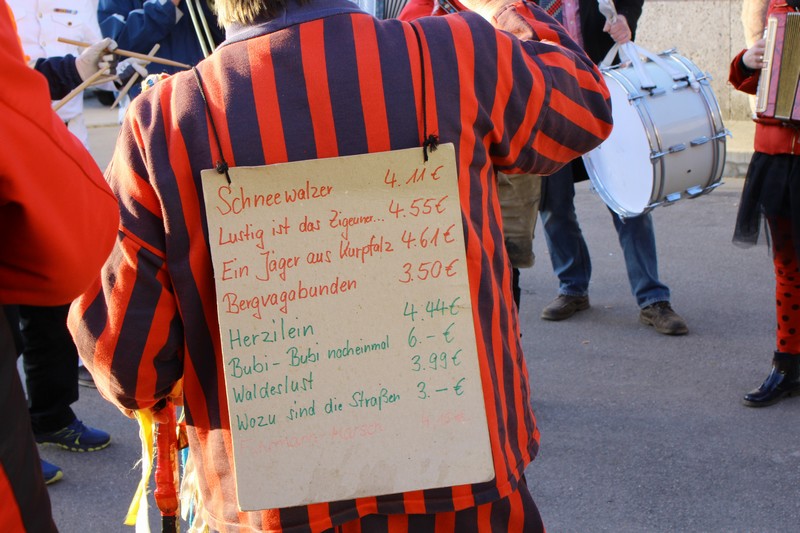 Schneewalzer 4.11€
Lustig ist das Zigeuner... 4.55€
Ein Jäger aus Kurpfalz 4.61€
Bergvagabunden 3.50€
Herzilein 4.44€
Bubi-Bubi nocheinmal 6.-€
Waldeslust 3.99€
Wozu sind die Straßen 3.-€
Marsch